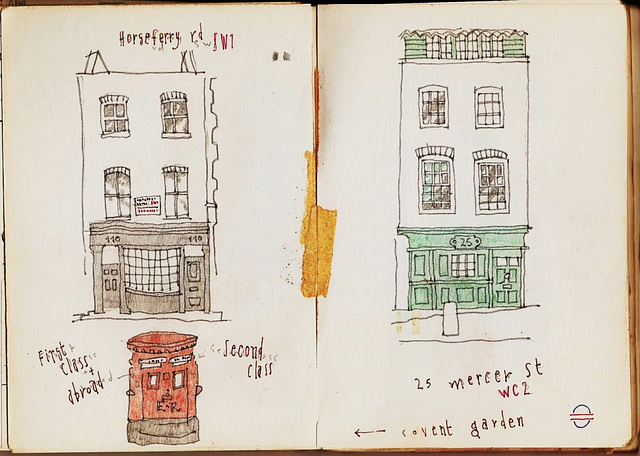 Horseferry rd SW1
110 110
First
class
+
abroad
second
class
E R
25
25 mercer st
WC2
← covent garden